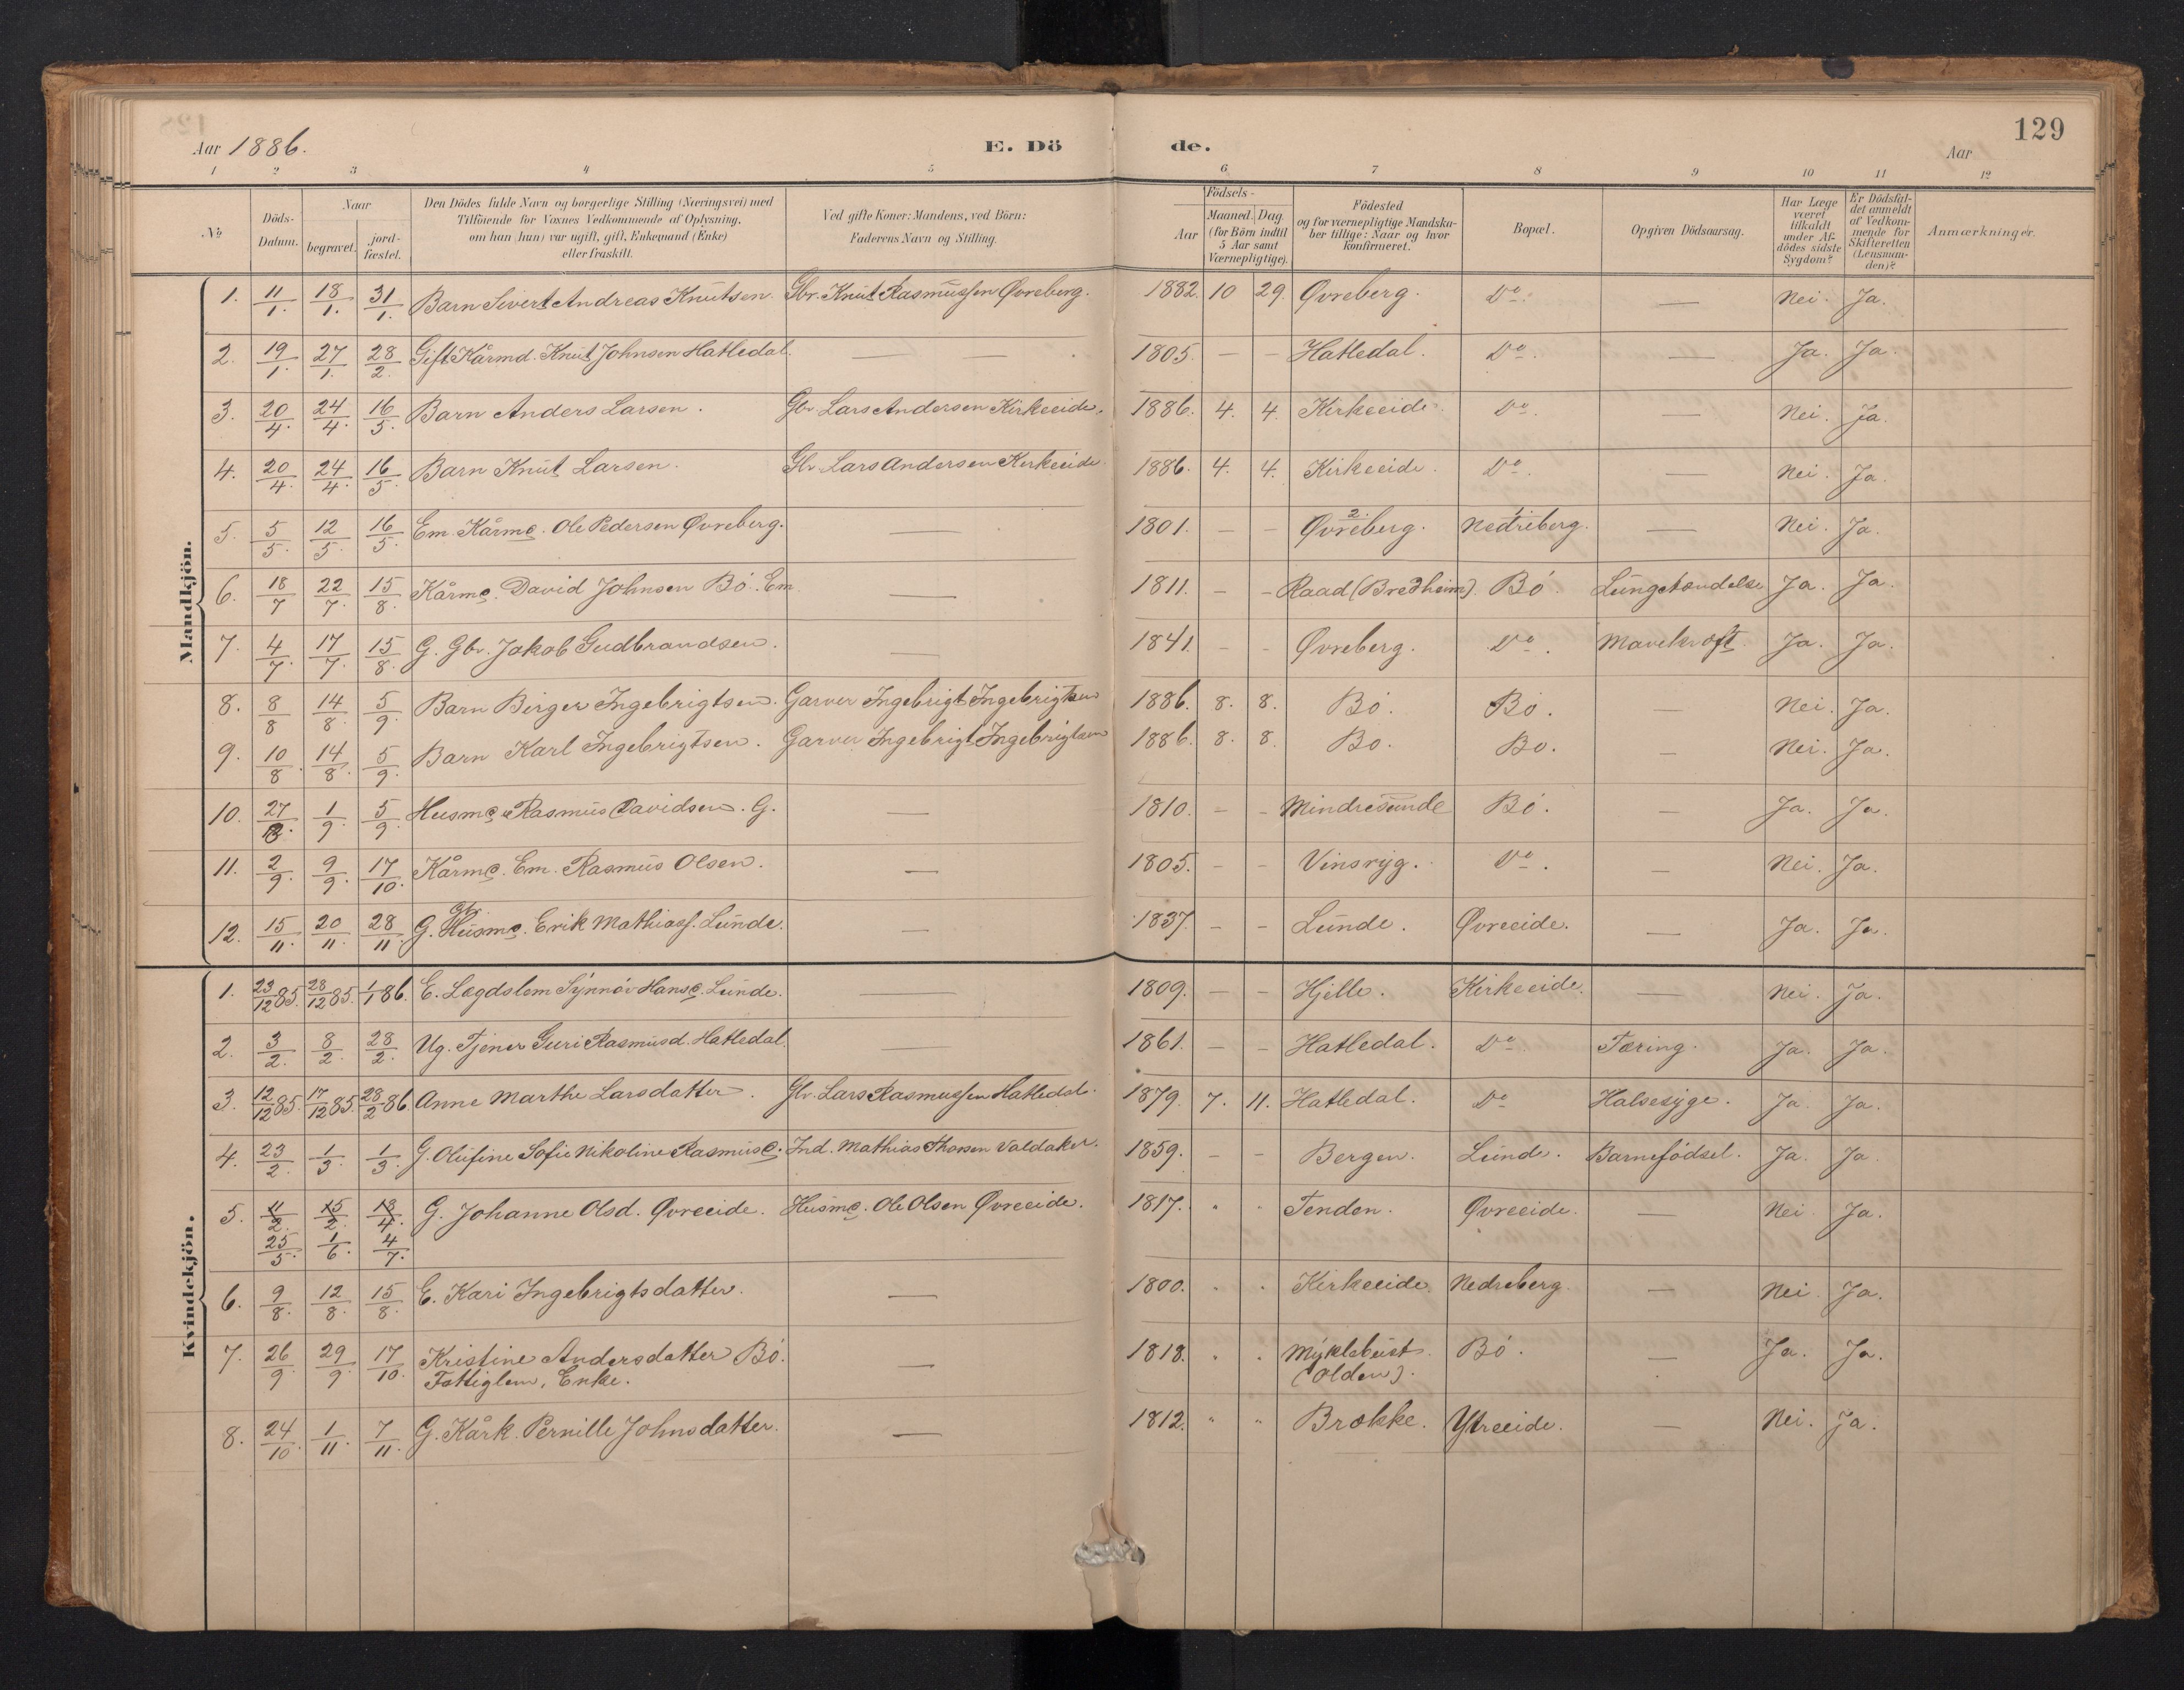 129
Aar 1886. E. Dö de. Aar
1 2 3 4 5 6 7 8 9 10 11 12
No Döds-Datum. Naar begravet. jord-fæstet. Den Dödes fulde Navn og borgerlige Stilling (Næringsvei) med Tilföiende for Voxnes Vedkommende af Oplysning, om han (hun) var ugift, gift, Enkemand (Enke) eller fraskilt. Ved gifte Koner: Mandens, ved Börn: Faderens Navn og Stilling. Födsels- Aar Maaned. Dag. (for Börn indtil 5 Aar samt Værnepligtige). Födested og for værnepligtige Mandskaber tillige: Naar og hvor konfirmeret. Bopæl. Opgiven Dödsaarsag. Har Læge været tilkaldt under Afdödes sidste Sygdom? Er Dödsfaldet anmeldt af Vedkommende for Skifteretten (Lensmanden)? Anmærkninger.
Mandkjön.
1. 11/1. 18/1. 31/1. Barn Sivert Andreas Knutsen. Gbr. Knut Rasmussen Øvreberg. 1882. 10 29. Øvreberg. Do. — Nei. Ja.
2. 19/1. 27/1. 28/2. Gift Kårmd. Knut Johnsen Hatledal. — 1805. — — Hatledal. Do. — Ja. Ja.
3. 20/4. 24/4. 16/5. Barn Anders Larsen. Gbr. Lars Andersen Kirkeeide. 1886. 4. 4. Kirkeeide. Do. — Nei. Ja.
4. 20/4. 24/4. 16/5. Barn Knut Larsen. Gbr. Lars Andersen Kirkeeide. 1886. 4. 4. Kirkeeide. Do. — Nei. Ja.
5. 5/5. 12/5. 16/5. Em. Kårmd. Ole Pedersen Øvreberg. — 1801. — — 2. Øvreberg. 1. Nedreberg. — Nei. Ja.
6. 18/7 22/7. 15/8. Kårmd. David Johnsen Bö. Em. — 1811. — — Raad (Bredheim). Bö Lungebændelse Ja. Ja.
7. 4/7. 17/7. 15/8. G. Gbr. Jakob Gudbrandsen. — 1841. — — Øvreberg. Do. Mavekræft Ja. Ja.
8. 8/8 14/8. 5/9. Barn Birger Ingebrigtsen. Garver Ingebrigt Ingebrigtsen 1886. 8. 8. Bö. Bö. — Nei. Ja.
9. 10/8. 14/8. 5/9. Barn Karl Ingebrigtsen. Garver Ingebrigt Ingebrigtsen 1886. 8. 8. Bö. Bö. — Nei. Ja.
10. 27/8. 1/9. 5/9. Husmd Rasmus Davidsen. G. — 1810. — — Mindresunde Bö. — Ja. Ja.
11. 2/9. 9/9. 17/10. Kårmd. Em. Rasmus Olsen. — 1805. — — Vinsryg. Do. — Nei. Ja.
12. 15/11. 20/11. 28/11. G. Gbr. Husmd. Erik Mathiass. Lunde. — 1837. — — Lunde. Øvreeide. — Ja. Ja.
Kvindekjön.
1. 23/12 85. 28/12 85. 1/1 86. E. Lægdslem Synnøv Hansd. Lunde. — 1809. — — Hjelle. Kirkeeide. — Nei. Ja.
2. 3/2. 8/2. 28/2. Ug. Tjener Guri Rasmusd. Hatledal. — 1861. — — Hatledal. Do. Tæring. Ja. Ja.
3. 12/12 85. 17/12 85. 28/2 86. Anne Marthe Larsdatter. Gbr. Lars Rasmussen Hatledal. 1879. 7. 11. Hatledal. Do Halsesyge. Ja. Ja.
4. 23/2. 1/3. 1/3. G. Olufine Sofie Nikoline Rasmusd. Ind. Mathias Thorsen Valdaker. 1859. — — Bergen. Lunde. Barnefödsel. Ja. Ja.
5. 11/2. 15/2. 18/4. G. Johanne Olsd. Øvreeide. Husmd. Ole Olsen Øvreeide. 1817. " " Tenden. Øvreeide. — Nei Ja.
25/5. 1/6. 4/7.
6. 9/8. 12/8. 15/8. E. Kari Ingebrigtsdatter. — 1800. " " Kirkeeide. Nedreberg. — Nei Ja.
7. 26/9 29/9 17/10. Kristine Andersdatter Bö. — 1818. " " Myklebust Bö. — Ja. Ja.
Fattiglem, Enke. (Olden).
8. 24/10 1/11. 7/11. G. Kårk. Pernille Johnsdatter. — 1812. " " Brække. Ytreeide. — Nei. Ja.